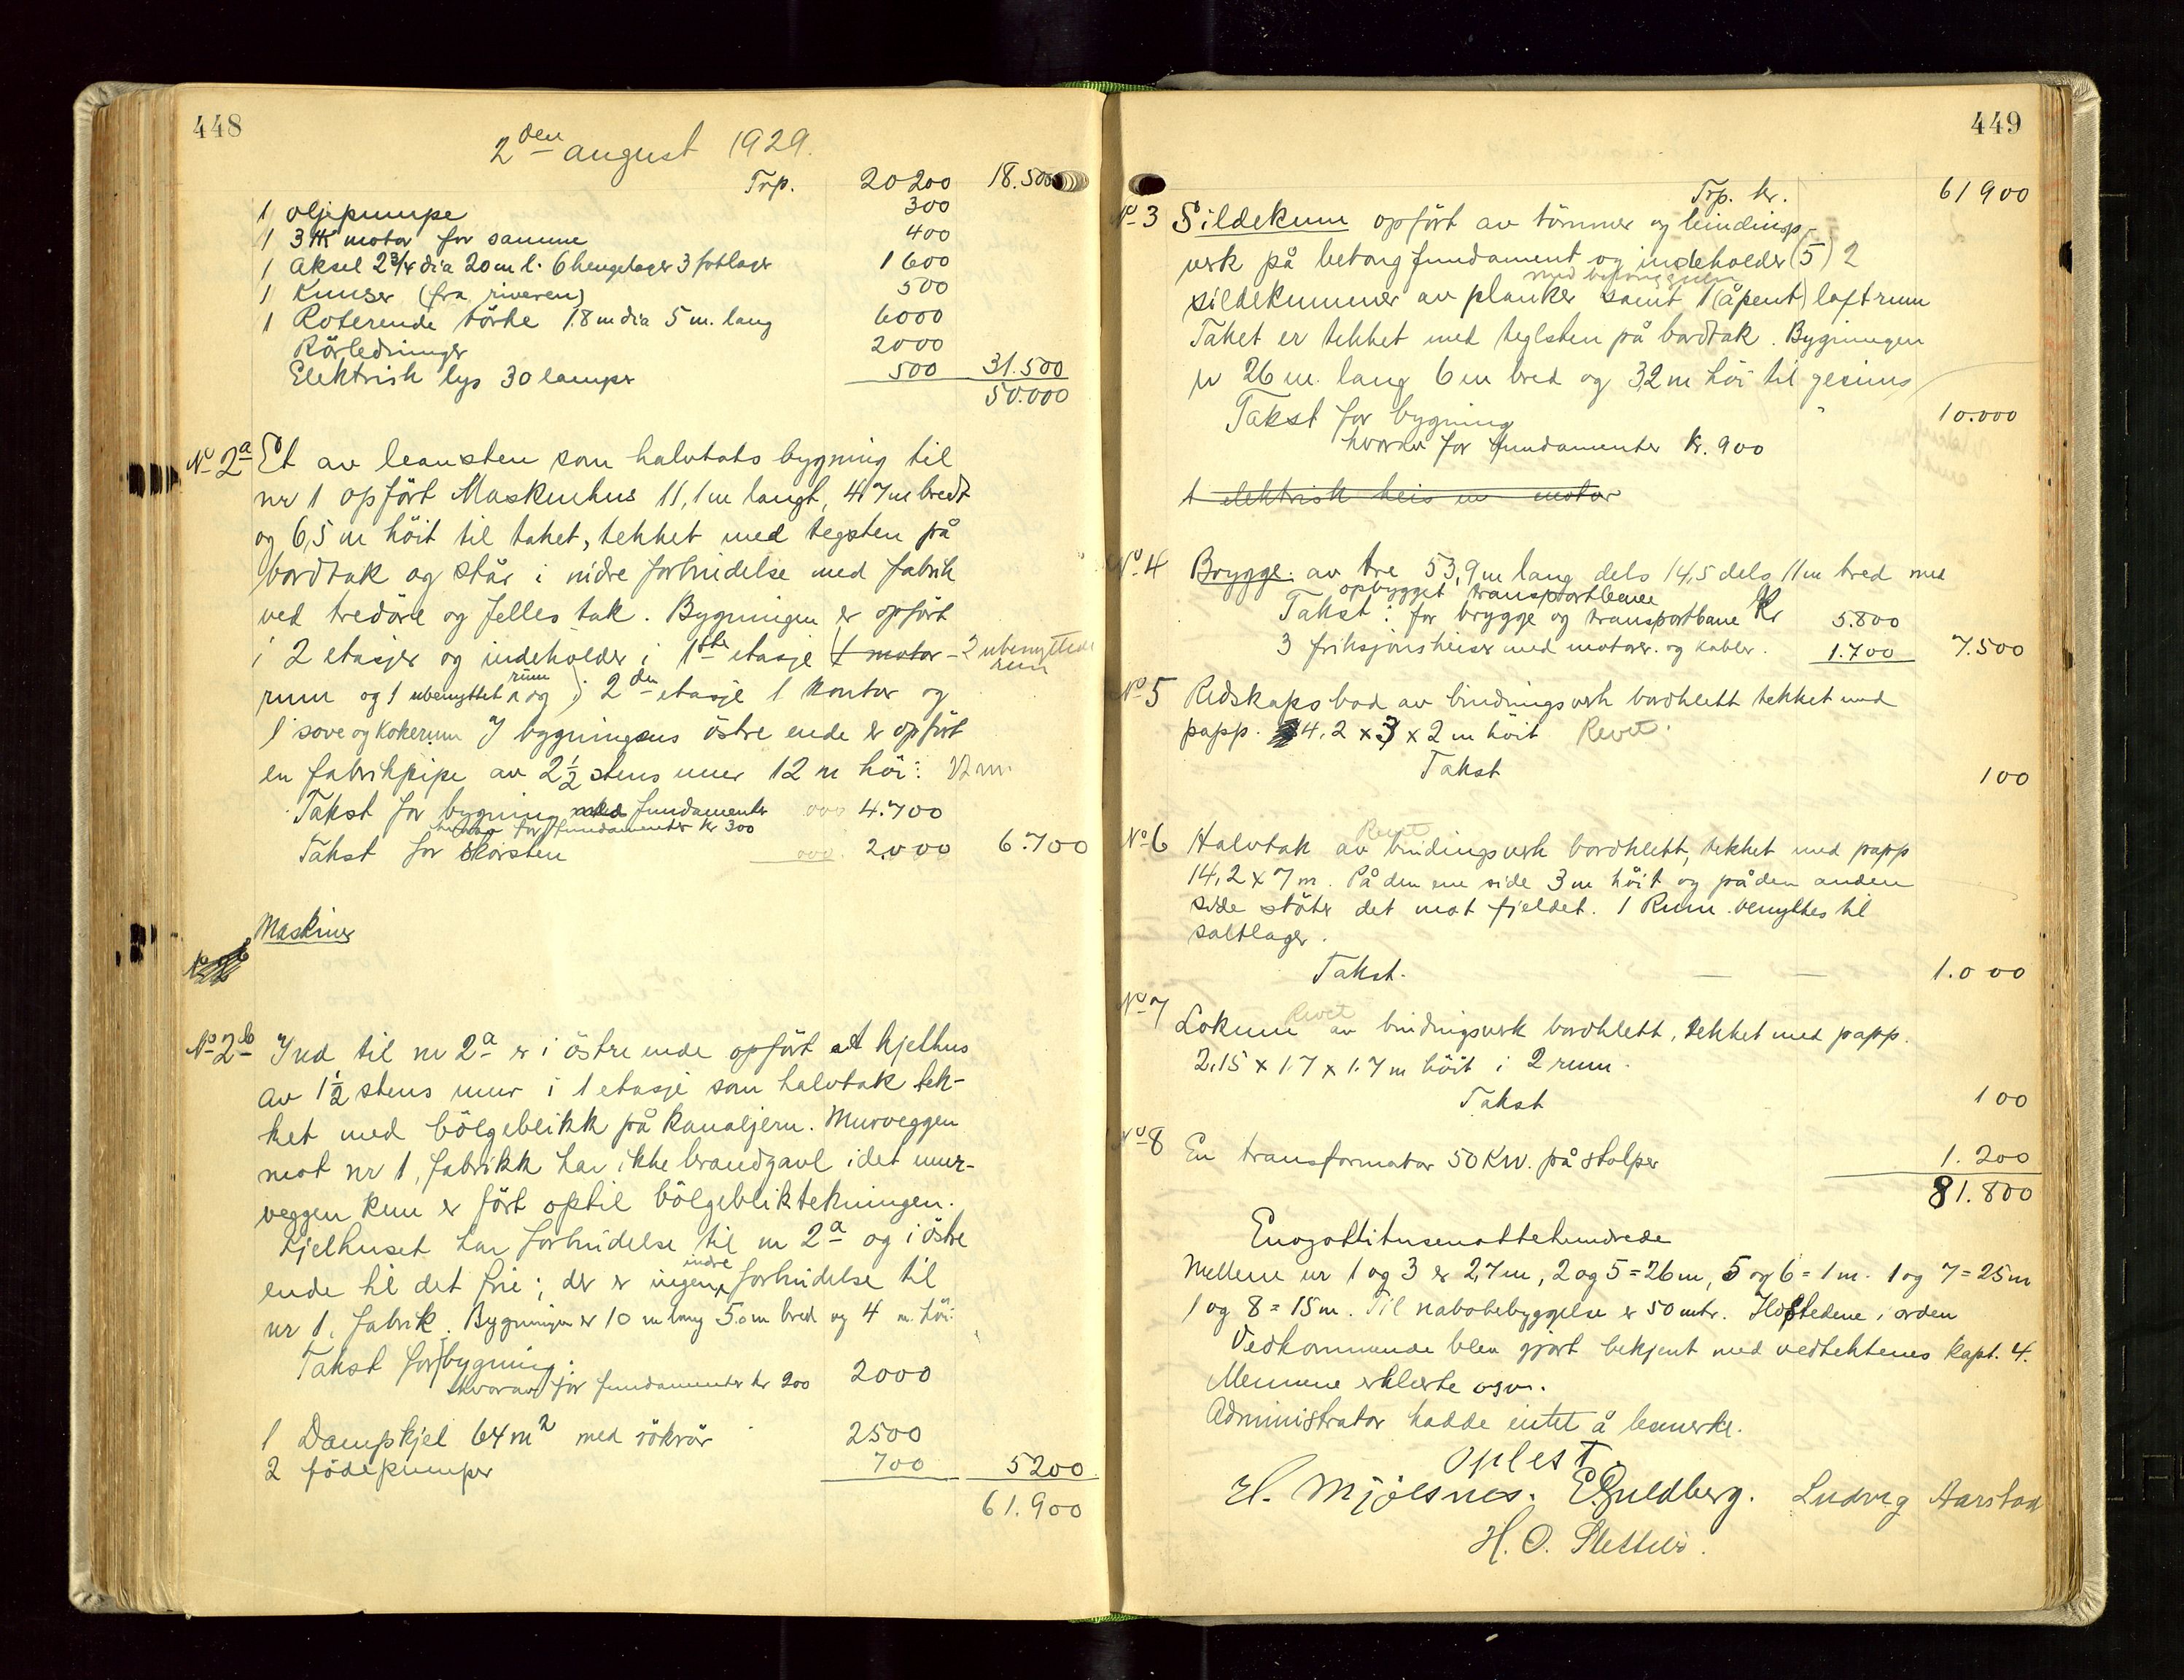 448
2den august 1929.
Trp. 20200 18.500
1 oljepumpe 300
1 3 HK motor for samme 400
1 aksel 2 3/4 dia 20 m l. 6 hengelager 3 fotlager 1600
1 Knuser (fra riveren) 500
1 Roterende törke 1.8 m dia 5 m. lang 6000
Rörledninger 2000
Elektrisk lys 30 lamper 500 31.500
50.000
No 2a Et av leansten som halvtaks bygning til
nr 1 opfört Maskinhus 11,1 m langt, 4,7 m bredt
og 6,5 m höit til taket, tekket med tegsten på
bordtak og står i indre forbindelse med fabrik
ved tredöre og felles tak. Bygningen er opfört
i 2 etasjer og indeholder i 1ste etasje 1 motor - 2 ubenyttede rum
rum og 1 ubenyttet rum og i 2den etasje 1 kontor og
1 sove og kokerum I bygningens östre ende er opfört
en fabrikpipe av 2 1/2 stens mur 12 m höi: 12 m.
Takst for bygning med fundamenter 4.700
hvorav for fundamenter kr 300
Takst for skorsten 2.000 6.700
Maskiner
No 2b Ind til nr 2a er i östre ende opfört et kjelhus
av 1 1/2 stens mur i 1 etasje som halvtak tek-
ket med bölgeblikk på kanaljern. Murveggen
mot nr 1, fabrikk har ikke brandgavl idet mur-
veggen kun er fört optil bölgebliktekningen.
Kjelhuset har forbindelse til nr 2a og i östre
ende til det frie; der er ingen indre forbindelse til
nr 1, fabrik. Bygningen er 10 m lang 5.0 m bred og 4 m. höi.
Takst for bygning: 2000
hvorav for fundamenter kr 200
1 Dampkjel 64 m2 med rökrör 2500
2 födepumper 700 5200
61.900
449
Trp. kr. 61900
No 3 Sildekum opfört av tömmer og bindings-
verk på betongfundament og indeholder (5) 2
sildekummer av planker samt 1 (åpent) loftrum
Taket er tekket med teglsten på bordtak. Bygningen
er 26 m. lang 6 m bred og 3,2 m höi til gesims
Takst for bygning 10.000
hvorav for fundamenter kr. 900
1 elektrisk heis m motor
No 4 Brygge av tre 53,9 m lang dels 14,5 dels 11 m bred med
opbygget transportbane
Takst: for brygge og transportbane Kr 5.800
3 friksjonsheiser med motorer. og kabler. 1.700 7.500
No 5 Redskapsbod av bindingsverk bordklett tekket med
papp. 4,2 x 3 x 2 m höit Revet.
Takst 100
Revet
No 6 Halvtak av bindingsverk bordklett, tekket med papp
14,2 x 7 m. På den ene side 3 m höit og på den anden
side stöter det mot fjeldet. 1 Rum benyttes til
saltlager.
Takst. 1.000
Revet
No 7 Lokum av bindingsverk bordklett, tekket med papp.
2,15 x 1.7 x 1.7 m höit i 2 rum.
Takst 100
No 8 En transformator 50 KW. på stolper 1.200
81.800
Enogottitusenottehundrede
Mellem nr 1 og 3 er 2,7 m, 2 og 5 = 26 m, 5 og 6 = 1 m. 1 og 7 = 25 m
1 og 8 = 15 m. Til nabobebyggelse er 50 mtr. Ildstedene i orden
Vedkommende blev gjort bekjent med vedtektenes kapt. 4.
Mennene erklærte osv.
Administrator hadde intet å bemerke.
Oplest.
H. Mjölsnes. E. Guldberg. Ludvig Aarstad
H. O. Slettebö.